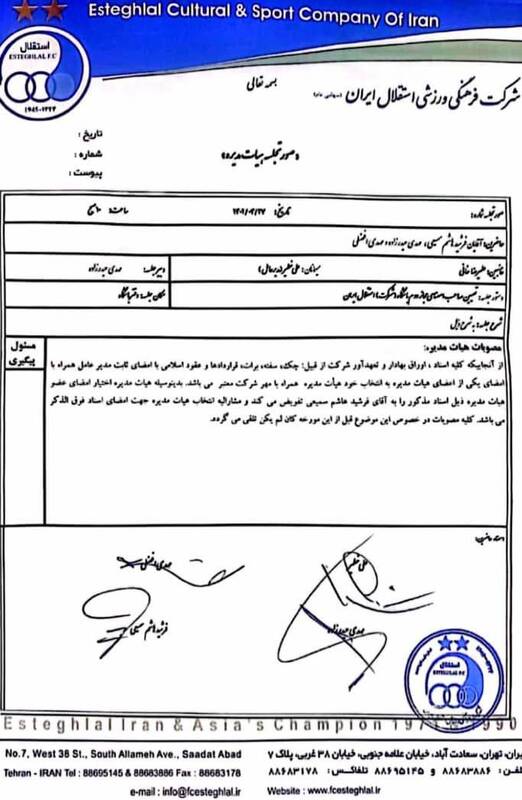 Esteghlal Cultural & Sport Company Of Iran
استقلال
ESTEGHLAL F.C
بسمه تعالی
شرکت فرهنگی ورزشی استقلال ایران (سهامی عام)
تاریخ :
شماره :
پیوست :
«صورتجلسه هیات مدیره»
صورتجلسه شماره: تاریخ: ساعت:
حاضرین: آقایان فرشید هاشم سمیعی، مهدی حیدرزاده، مهدی افضلی
غایبین: علیرضا خانی میهمانان: علی خطیر (مدیرعامل) دبیر جلسه: مهدی حیدرزاده
دستور جلسه: تعیین صاحب امضای مجاز دوم باشگاه (شرکت) استقلال ایران مکان جلسه: دفتر باشگاه
شرح جلسه: به شرح ذیل
مصوبات هیات مدیره:
مسئول پیگیری
از آنجاییکه کلیه اسناد ، اوراق بهادار و تعهدآور شرکت از قبیل: چک، سفته، برات، قراردادها و عقود اسلامی با امضای ثابت مدیر عامل همراه با
امضای یکی از اعضای هیات مدیره به انتخاب خود هیأت مدیره همراه با مهر شرکت معتبر می باشد. بدینوسیله هیات مدیره اختیار امضای عضو
هیات مدیره ذیل اسناد مذکور را به آقای فرشید هاشم سمیعی تفویض می کند و مشارالیه انتخاب هیات مدیره جهت امضای اسناد فوق الذکر
می باشد. کلیه مصوبات در خصوص این موضوع قبل از این مورخه کان لم یکن تلقی می گردد.
امضاء حاضرین:
علی خطیر مهدی افضلی
مهدی حیدرزاده فرشید هاشم سمیعی
استقلال
Esteghlal Iran & Asia's Champion 1971 & 1990
No.7, West 38 St., South Allameh Ave., Saadat Abad
Tehran - IRAN Tel : 88695145 & 88683886 Fax : 88683178
e-mail : info@fcesteghlal.ir
ایران، تهران، سعادت آباد، خیابان علامه جنوبی، خیابان ۳۸ غربی، پلاک ۷
تلفن: ۸۸۶۸۳۸۸۶ و ۸۸۶۹۵۱۴۵ تلفاکس: ۸۸۶۸۳۱۷۸
Website : www.fcesteghlal.ir